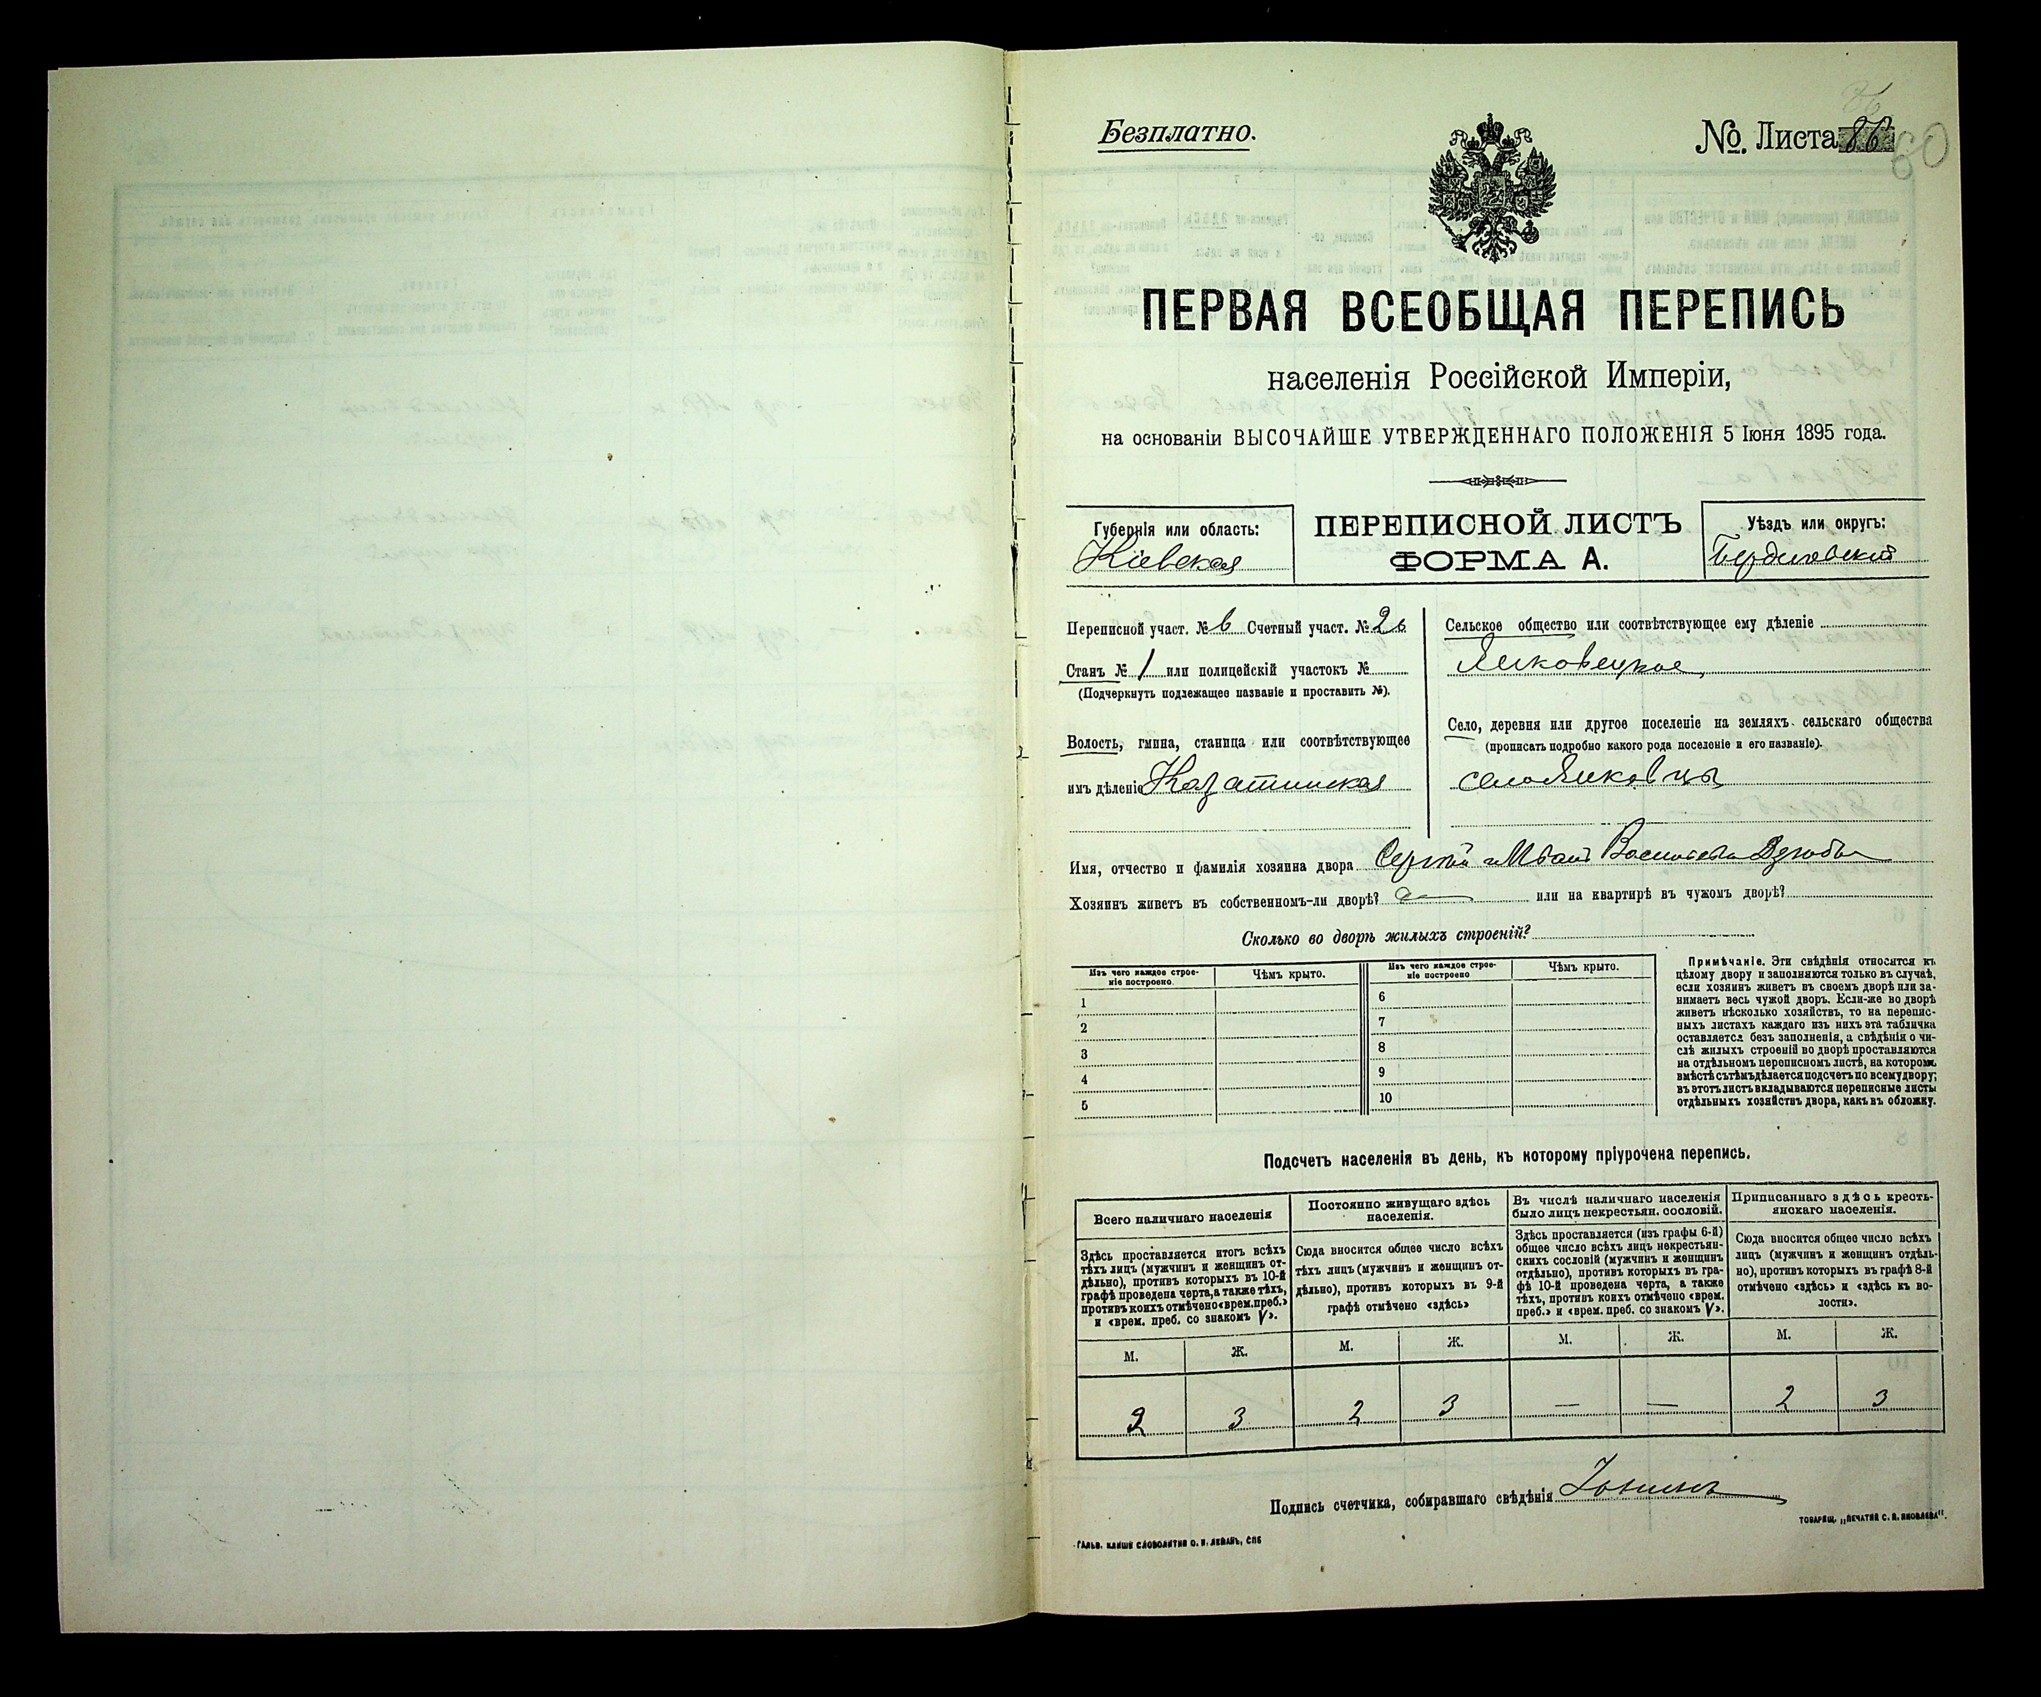 Безплатно.
№. Листа 86
60
ПЕРВАЯ ВСЕОБЩАЯ ПЕРЕПИСЬ
населенія Россійской Имперіи,
на основаніи ВЫСОЧАЙШЕ УТВЕРЖДЕННАГО ПОЛОЖЕНІЯ 5 Іюня 1895 года.
Губернія или область:
Кіевская
ПЕРЕПИСНОЙ ЛИСТЪ
ФОРМА А.
Уѣздъ или округъ:
Бердичевскій
Переписной участ. № 6 Счетный участ. № 26
Станъ № 1 или полицейскій участокъ №
(Подчеркнуть подлежащее названіе и проставить №).
Волость, гмина, станица или соотвѣтствующее
имъ дѣленіе Козатинская
Сельское общество или соотвѣтствующее ему дѣленіе
Село, деревня или другое поселеніе на земляхъ сельскаго общества
(прописать подробно какого рода поселеніе и его названіе).
село
Имя, отчество и фамилія хозяина двора Сергій и Иванъ Дзюбы
Хозяинъ живетъ въ собственномъ-ли дворѣ? да или на квартирѣ въ чужомъ дворѣ?
Сколько во дворѣ жилыхъ строеній?
Изъ чего каждое строе-
ніе построено.
Чѣмъ крыто.
Изъ чего каждое строе-
ніе построено
Чѣмъ крыто.
1
2
3
4
5
6
7
8
9
10
Примѣчаніе. Эти свѣдѣнія относятся къ
цѣлому двору и заполняются только въ случаѣ,
если хозяинъ живетъ въ своемъ дворѣ или за-
нимаетъ весь чужой дворъ. Если-же во дворѣ
живетъ нѣсколько хозяйствъ, то на перепис-
ныхъ листахъ каждаго изъ нихъ эта табличка
оставляется безъ заполненія, а свѣдѣнія о чи-
слѣ жилыхъ строеній во дворѣ проставляются
на отдѣльномъ переписномъ листѣ, на которомъ
вмѣстѣ съ тѣмъ дѣлается подсчетъ по всему двору;
въ этотъ листъ вкладываются переписные листы
отдѣльныхъ хозяйствъ двора, какъ въ обложку.
Подсчетъ населенія въ день, къ которому пріурочена перепись.
Всего наличнаго населенія
Здѣсь проставляется итогъ всѣхъ
тѣхъ лицъ (мужчинъ и женщинъ от-
дѣльно), противъ которыхъ въ 10-й
графѣ проведена черта, а также тѣхъ,
противъ коихъ отмѣчено «врем. преб.»
и «врем. преб. со знакомъ V».
Постоянно живущаго здѣсь
населенія.
Сюда вносится общее число всѣхъ
тѣхъ лицъ (мужчинъ и женщинъ от-
дѣльно), противъ которыхъ въ 9-й
графѣ отмѣчено «здѣсь»
Въ числѣ наличнаго населенія
было лицъ некрестьян. сословій.
Здѣсь проставляется (изъ графы 6-й)
общее число всѣхъ лицъ некрестьян-
скихъ сословій (мужчинъ и женщинъ
отдѣльно), противъ которыхъ въ гра-
фѣ 10-й проведена черта, а также
тѣхъ, противъ коихъ отмѣчено «врем.
преб.» и «врем. преб. со знакомъ V».
Приписаннаго здѣсь кресть-
янскаго населенія.
Сюда вносится общее число всѣхъ
лицъ (мужчинъ и женщинъ отдѣль-
но), противъ которыхъ въ графѣ 8-й
отмѣчено «здѣсь» и «здѣсь къ во-
лости».
М. Ж. М. Ж. М. Ж. М. Ж.
2 3 2 3 — — 2 3
Подпись счетчика, собиравшаго свѣдѣнія
ТОВАРИЩ. „ПЕЧАТНЯ С. П. ЯКОВЛЕВА".
ГАЛЬВ. КЛИШЕ СЛОВОЛИТНИ О. И. ЛЕМАНЪ, СПБ